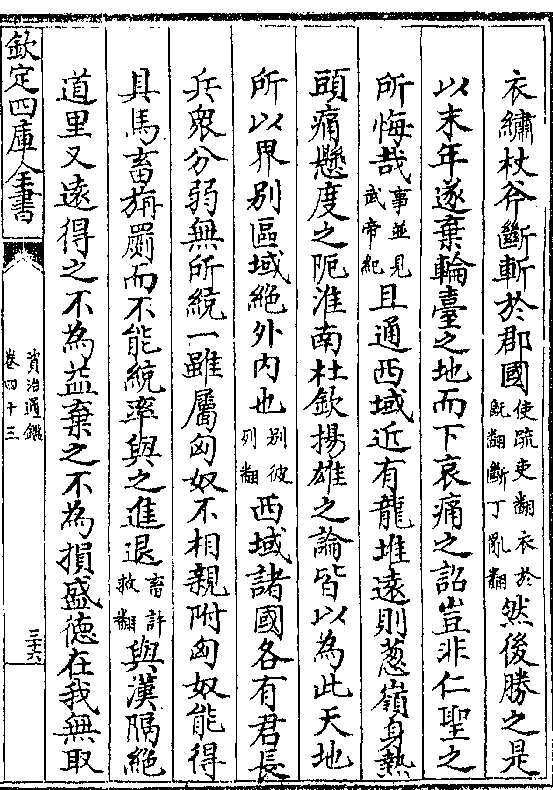 衣繡杖斧斷斬於郡國使疏吏翻衣於旣翻斷丁亂翻然後勝之是
以末年遂棄輪臺之地而下哀痛之詔豈非仁聖之
所悔哉事並見武帝紀且通西域近有龍堆遠則葱嶺身熱
頭痛懸度之阨淮南杜欽揚雄之論皆以為此天地
所以界别區域絶外内也别彼列翻西域諸國各有君長
兵衆分弱無所統一雖屬匈奴不相親附匈奴能得
具馬畜旃罽而不能統率與之進退畜許救翻與漢隔絶
道里又遠得之不為益棄之不為損盛德在我無取
欽定四庫全書
資治通鑑
卷四十三
三十六